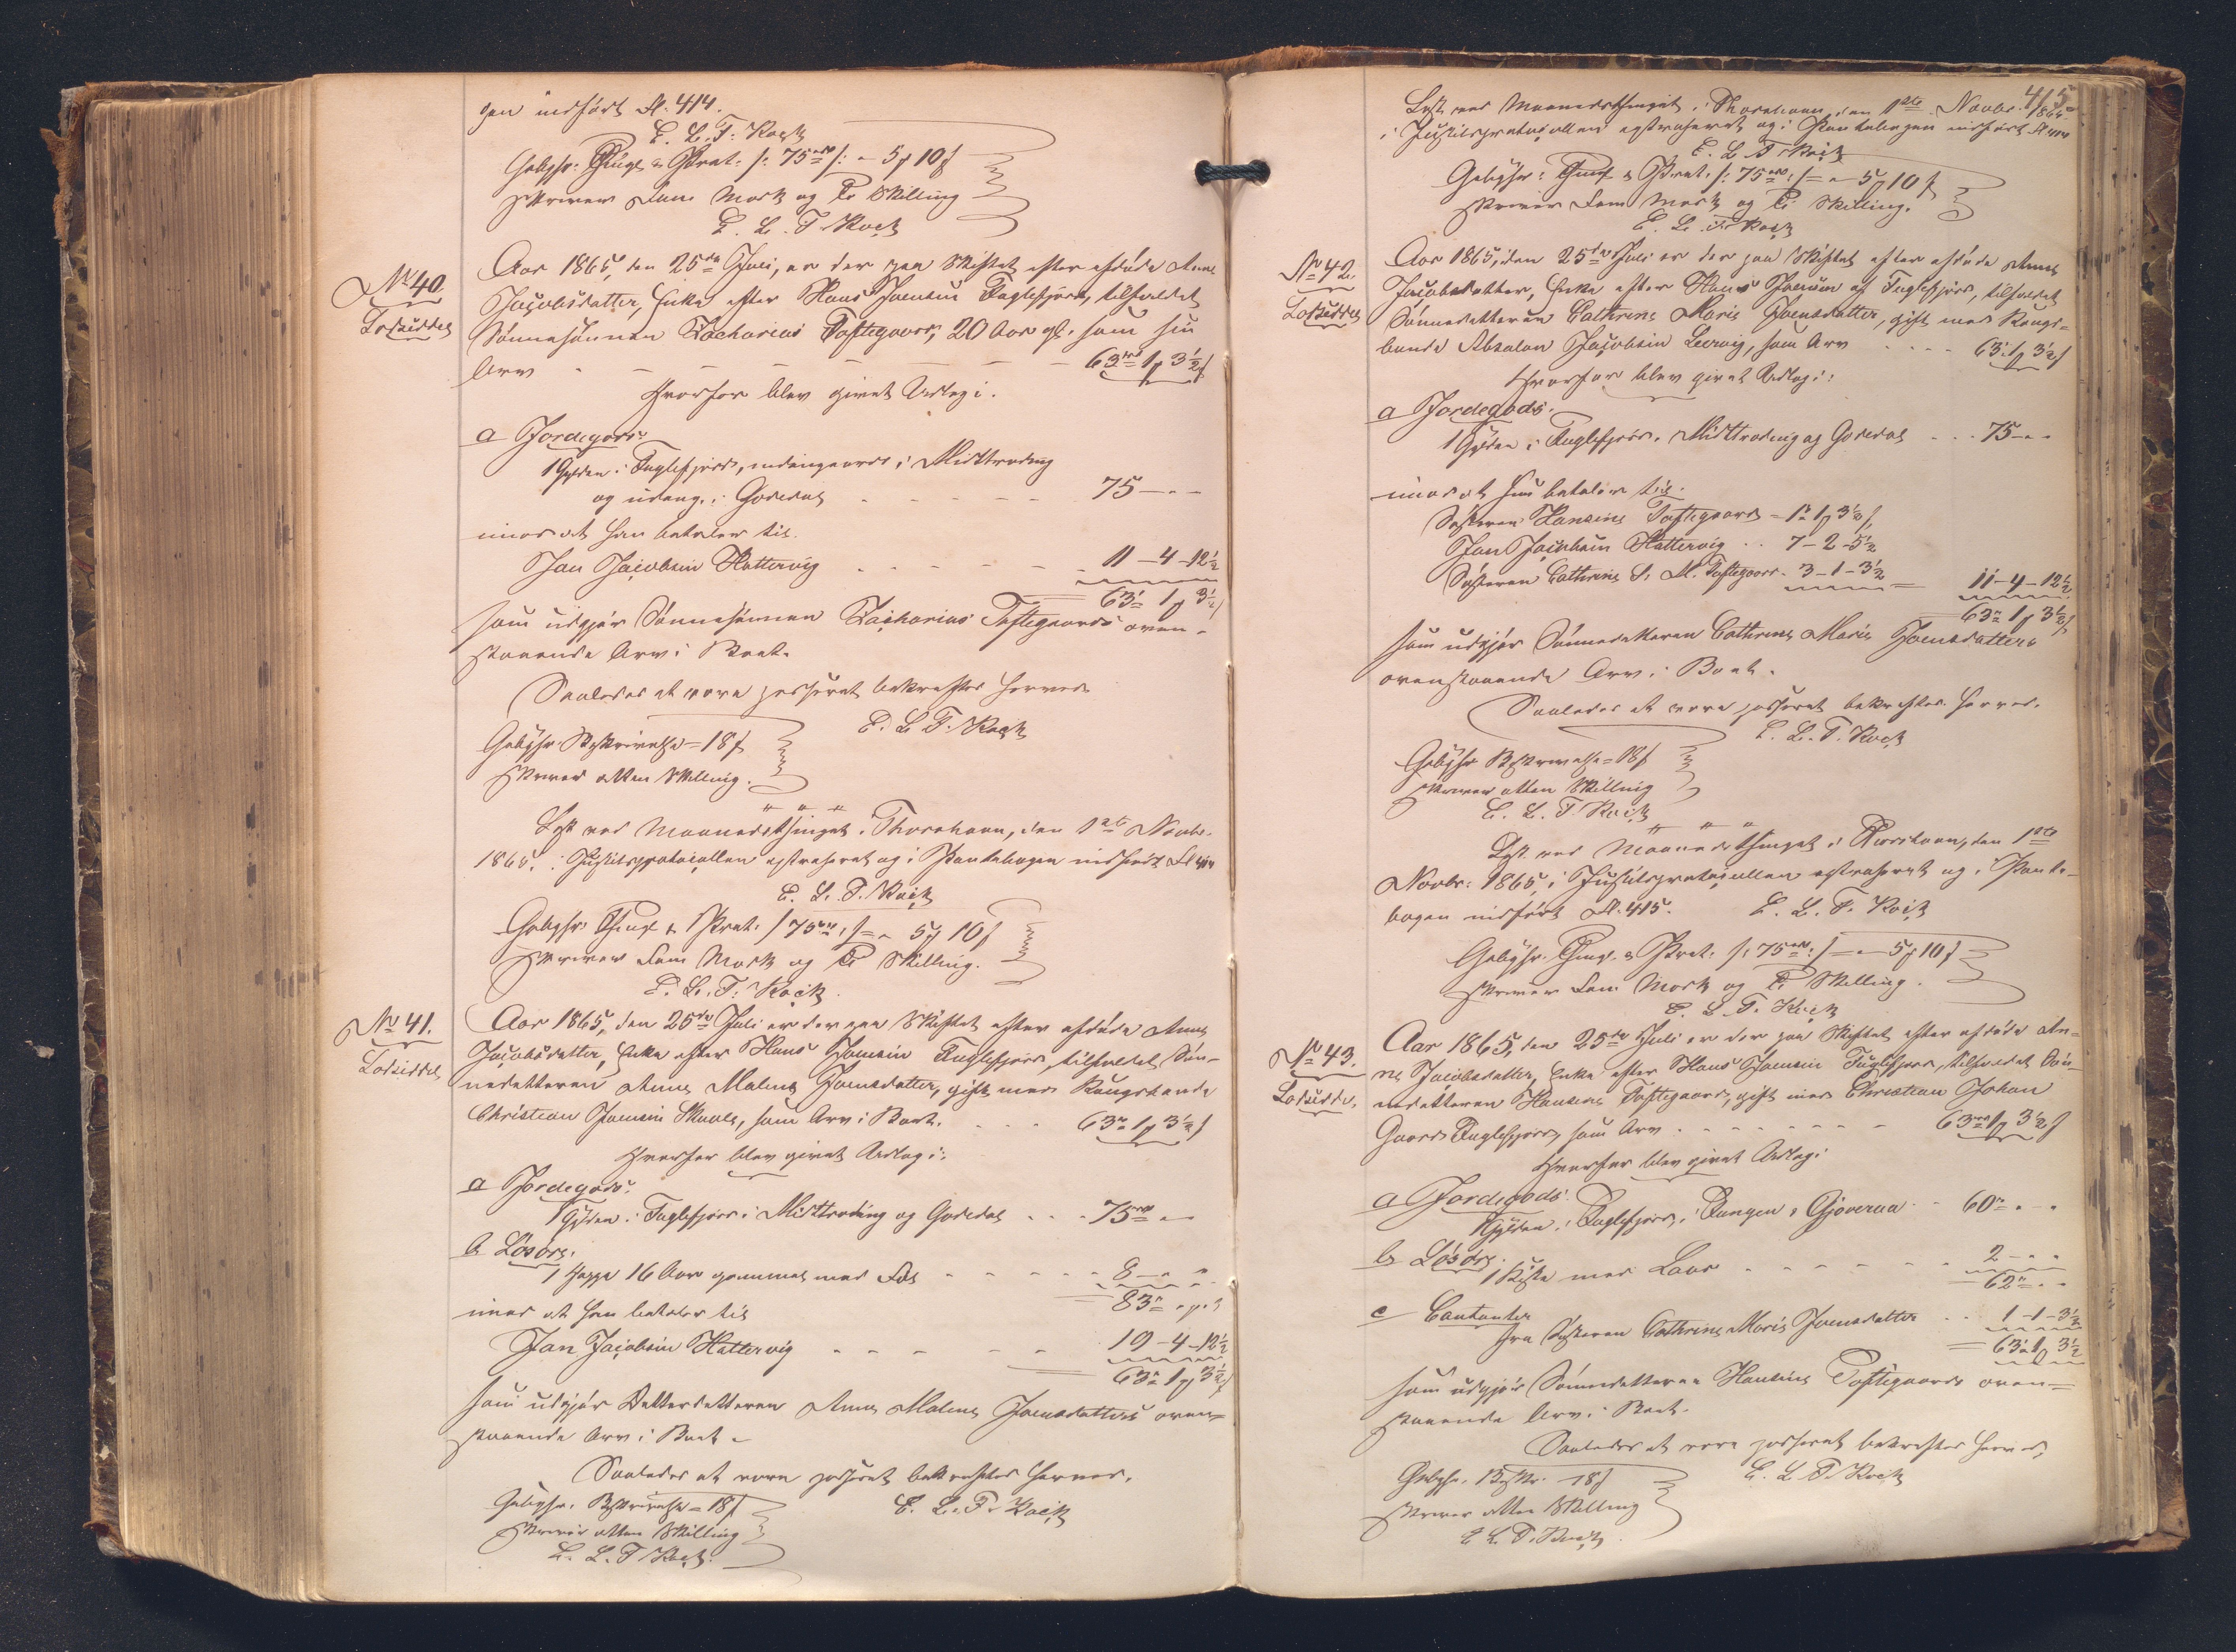 gen indført Fl. 414.
E. L. T. Kock
Gebyhr: Thingl & Skrat: /: 75 rd :/ = " 5 ₰ 10 s
skriver Fem Mark og Ti Skilling
E. L. T. Kock
No 40
Lodseddel
Aar 1865, den 25de Juli, er der paa Skiftet efter afdøde Anne
Jacobsdatter, Enke efter Hans Joensen Fuglefjord, tilfaldet
Sønnesønnen Zacharias Toftegaard, 20 Aar gl. som sin
Arv - - - - - 63 rd 1 ₰ 3½ s
Hvorfor blev givet Udlæg i:
a Jordegods:
1 Gylden i Fuglefjord, indangaards i Midttrøding
og udang. i Godedal - - - - - 75 - " -
imod at han betaler til
Jan Jacobsen Hattervig - - - - - 11 - 4 - 12½
= 63 rd 1 ₰ 3½ s
som udgjør Sønnesønnen Zacharias Toftegaards oven-
staaende Arv i Boet.
Saaledes at være passeret bekræftes herved
E. L. T. Kock
Gebyhr Beskrivelse = 18 s
skriver atten Skilling.
" " "
Læst ved Maanedsthinget i Thorshavn, den 1ste Novbr.
1865, i Justitsprotocollen extraheret og i Pantebogen indført Fl 414
E. L. T. Kock
Gebyhr: Thingl & Skrat: / 75 rd :/ = " 5 ₰ 10 s
skriver Fem Mark og Ti Skilling.
E. L. T. Kock
No 41.
Lodseddel
Aar 1865, den 25de Juli er der paa Skiftet efter afdøde Anne
Jacobsdatter, Enke efter Hans Joensen Fuglefjord, tilfaldet Søn-
nedatteren Anne Malene Joensdatter, gift med Kongsbonde
Christian Joensen Skaale, som Arv i Boet. - - - 63 rd 1 ₰ 3½ s
Hvorfor blev givet Udlæg i:
a Jordegods:
1 Gylden i Fuglefjord i Midttrøding og Godedal - - - 75 rd " -
b Løsøre.
1 16 Aar gammel med - - - - - 8 - " "
= 83 rd " ₰ " s
imod at hun betaler til
Jan Jacobsen Hattervig - - - - - 19 - 4 - 12½
= 63 rd 1 ₰ 3½ s
som udgjør Datterdatteren Anne Malene Joensdatters oven-
staaende Arv i Boet -
Saaledes at være passeret bekræftes herved.
Gebyhr. Beskrivelse = 18 s
E. L. T. Kock
skriver atten Skilling
E. L. T. Kock
415
Læst ved Maanedsthinget i Thorshavn, den 1ste Novbr. 1865
i Justitsprotocollen extraheret og i Pantebogen indført Fl 414
E. L. T. Kock
Gebyhr: Thingl & Skrat: /: 75 rd :/ = " 5 ₰ 10 s
skriver Fem Mark og Ti Skilling.
E. L. T. Kock
No 42.
Lodseddel
Aar 1865, den 25de Juli er der paa Skiftet efter afdøde Anne
Jacobsdatter, Enke efter Hans Joensen af Fuglefjord, tilfaldet
Sønnedatteren Cathrine Marie Joensdatter, gift med Kongs-
bonde Absalon Jacobsen Leervig, som Arv - - - - 63 rd 1 ₰ 3½ s
Hvorfor blev givet Udlæg i:
a Jordegods.
1 Gylden i Fuglefjord i Midttrøding og Godedal - - - 75 - " "
imod at hun betaler til.
Søsteren Hansine Toftegaard = 1 rd 1 ₰ 3½ s
Jan Jacobsen Hattervig - - 7 - 2 - 5½
Søsteren Cathrine S. M. Toftegaard - 3 - 1 - 3½ = 11 - 4 - 12½
= 63 rd 1 ₰ 3½ s
som udgjør Sønnedatteren Cathrine Marie Joensdatters
ovenstaaende Arv i Boet.
Saaledes at være passeret bekræftes herved.
E. L. T. Kock
Gebyhr Beskrivelse = 18 s
skriver atten Skilling
E. L. T. Kock
" " "
Læst ved Maanedsthinget i Thorshavn, den 1ste
Novbr: 1865, i Justitsprotocollen extraheret og i Pante-
bogen indført Fl. 415.
E. L. T. Kock
Gebyhr. Thingl. & Skrat: /: 75 rd :/ = " 5 ₰ 10 s
skriver Fem Mark og Ti Skilling.
E. L. T. Kock
No 43.
Lodsedde.
Aar 1865, den 25de Juli er der paa Skiftet efter afdøde An-
ne Jacobsdatter, Enke efter Hans Joensen Fuglefjord, tilfaldet Søn-
nedatteren Hansine Toftegaard, gift med Christian Johan
Gaard Fuglefjord, som Arv - - - - - - - 63 rd 1 ₰ 3½ s
Hvorfor blev givet Udlæg:
a Jordegods:
1 Gylden i Fuglefjord, i Tungen & Gjoveraa - - 60 rd " - "
b Løsøre.
1 Kiste med Laas - - - - - - 2 - " "
= 62 rd " "
c Contanter
fra Søsteren Cathrine Marie Joensdatter - - 1 - 1 - 3½
= 63 rd 1 ₰ 3½
som udgjør Sønnedatteren Hansine Toftegaards oven-
staaende Arv i Boet.
Saaledes at være passeret bekræftes herved,
Gebyhr. Beskr. 18 s
E. L. T. Kock
skriver atten Skilling
E. L. T. Kock.